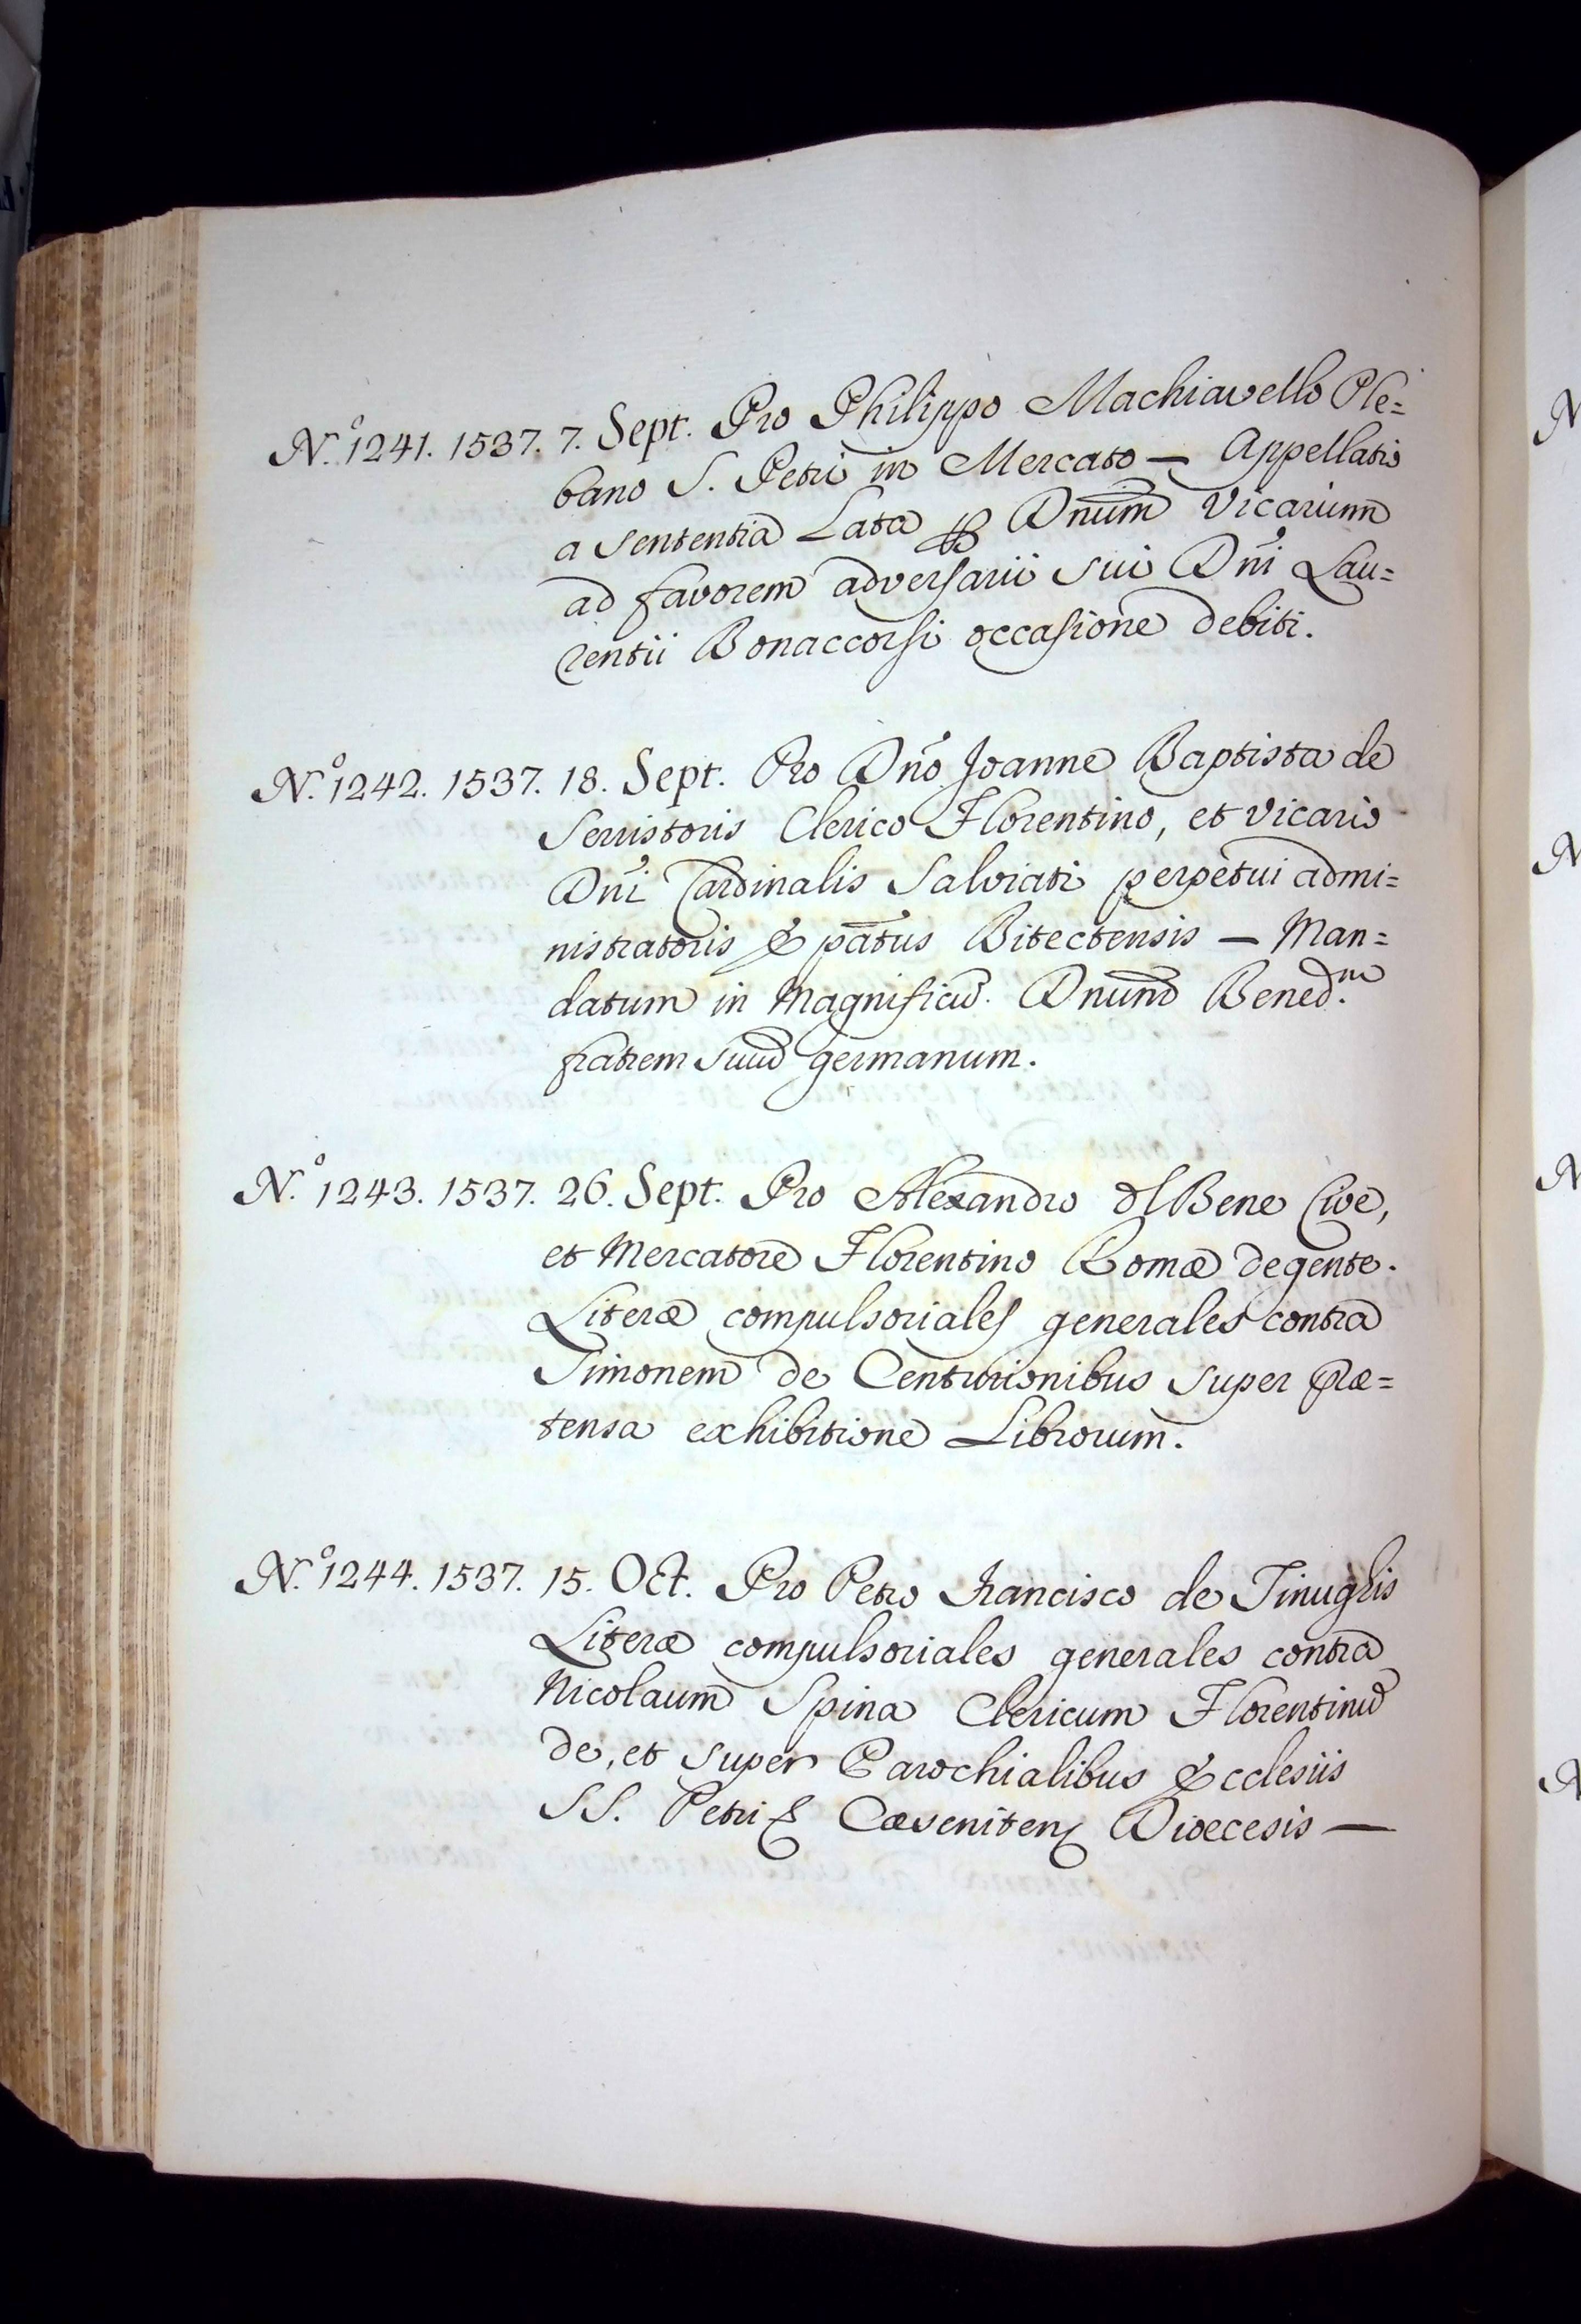 N.º 1241. 1537. 7. Sept. Pro Philippo Machiavello Ple=
bano S. Petri in Mercato — Appellatio
a sententia Lata Dnum̃ Vicarium
ad favorem adversarii sui Dñi Lau=
rentii Bonaccorsi occasione debiti.
N.º 1242. 1537. 18. Sept. Pro Dño Joanne Baptista de
Serristoris Clerico Florentino, et Vicario
Dñi Cardinalis Salviati perpetui admi=
nistratoris Epãtus Bitectensis — Man=
datum in Magnificũ. Dnum̃ Bened.m
fratrem suũ germanum.
N.º 1243. 1537. 26. Sept. Pro Alexandro dl Bene Cive,
et Mercatore Florentino Romæ degente.
Literæ compulsoriales generales contra
Simonem de Centurionibus super præ=
tensa exhibitione Librorum.
N.º 1244. 1537. 15. Oct. Pro Petro Francisco de Tinughis
Literæ compulsoriales generales contra
Nicolaum Spina Clericum Florentinũ
de, et super Parochialibus Ecclesiis
SS. Petri Diœcesis —